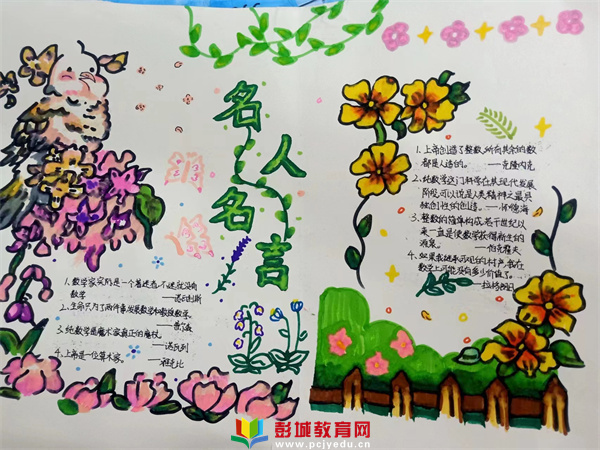 名人名言
1、数学家实际是一个着迷者,不迷就没有
数学 ——诺瓦利斯
2、生命只为了两件事,发展数学和教授数学。
——普尔森
3、纯数学是魔术家真正的魔杖。
——诺瓦列
4、上帝是一位算术家。——雅克比
1、上帝创造了整数,所有其余的数
都是人造的。——克隆内克
2、纯数学这门科学在其现代发展
阶段,可以说是人类精神之最具
独创性的创造。——怀德海
3、整数的简单构成,若干世纪以
来一直是使数学获得新生的
源泉。——伯克霍夫
4、如果我继承可观的财产,我在
数学上可能没有多少价值了。
——拉格朗日
彭城教育网
www.pcjyedu.cn